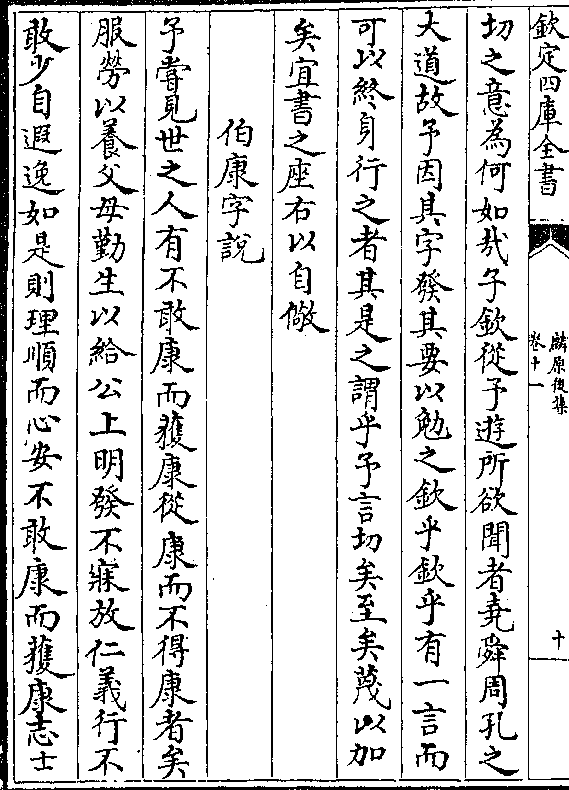 欽定四庫全書
麟原後集
卷十一
十
切之意為何如㢤子欽從予遊所欲聞者堯舜周孔之
大道故予因其字發其要以勉之欽乎欽乎有一言而
可以終身行之者其是之謂乎予言切矣至矣蔑以加
矣宜書之座右以自儆
伯康字說
予嘗見世之人有不敢康而獲康從康而不得康者矣
服勞以養父母勤生以給公上明發不寐放仁義行不
敢少自遐逸如是則理順而心安不敢康而獲康志士